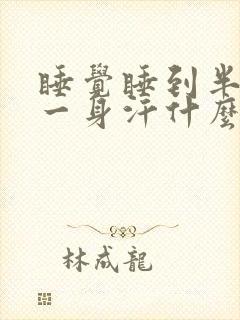 睡覺睡到半
一身汗什麼
林成龍